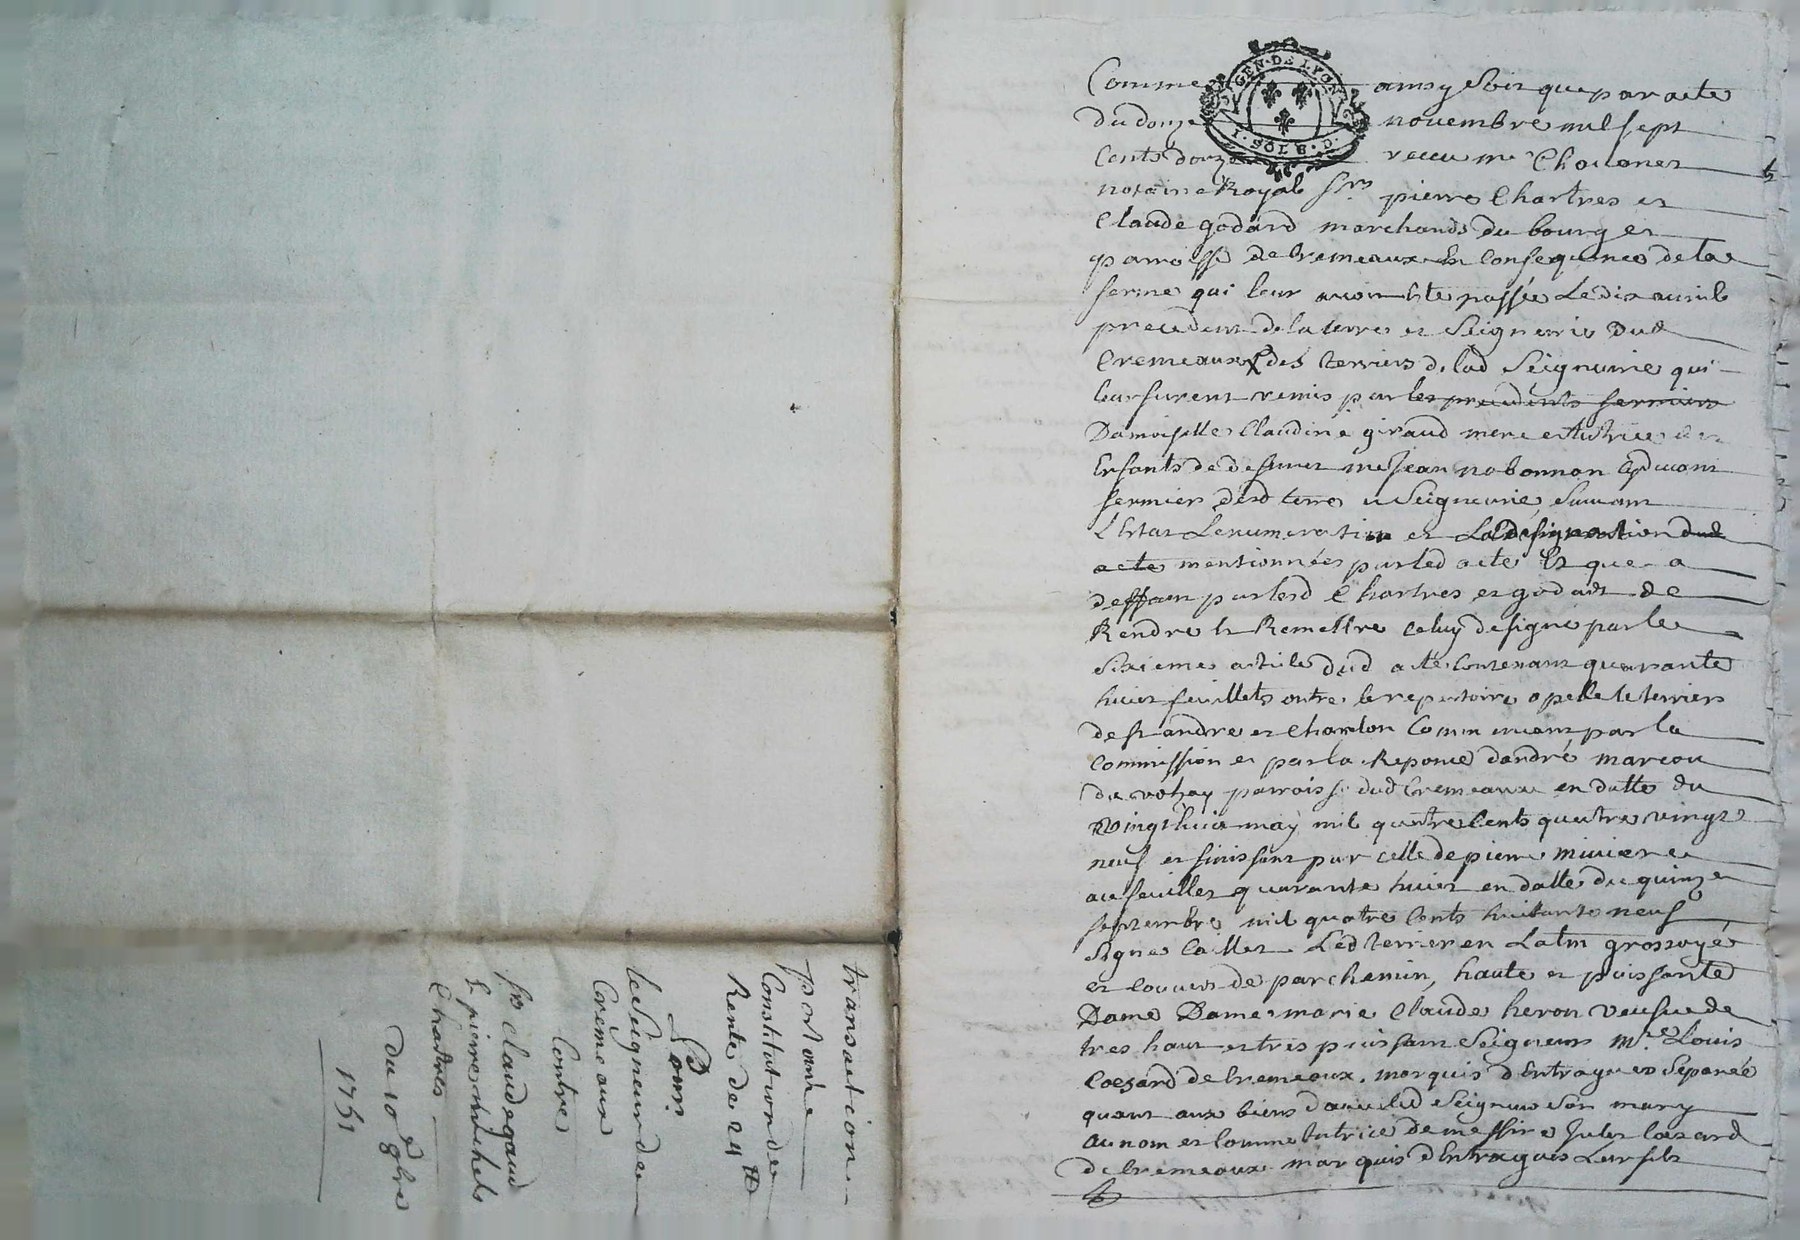 GEN. DE LYON
1. SOL 8. D.
Comme ainsy soit que par acte
du douze novembre mil sept
cents douze receu me Chovonet
notaire Royal srs pierre Chartres et
Claude godard marchands du bourg et
parroisse de Cremeaux En Consequence de la
ferme qui leur avoit Este passée Le dix avril
precedent de la terre et Seigneurie dud
Cremeaux des terriers de lad Seigneurie qui
leur furent remis par les precedents fermiers
Damoiselle Claudine giraud mere et tutrice des
Enfants de deffunct me Jean nabonnan
fermier desd terre et Seigneurie, Suivant
L'Estat Lenumeration et La Designation dud
acte mentionnées par led acte Et que a
deffaut par lesd Chartres et godard de
Rendre Et Remettre celuy designé par le
Sixieme article dud acte Contenant quarante
huict feuillets outre le repertoire apellé le terrier
de st andré et Chardon Commencant par la
Commission et par la Reponce d'andré marcou
de parroisse dud Cremeaux en datte du
Vingt huit may mil quatre Cents quatre vingt
neuf et finissant par celle de pierre
au feuillet quarante huict en datte du quinze
septembre mil quatre Cents huitante neuf
Signé Caillet Led terrier en Latin grossoyé
et Couvert de parchemin, haute et puissante
Dame Dame marie Claude heron veufue de
tres haut et tres puissant Seigneur Mre Louis
Coesard de Cremeaux. marquis d'Entragues Separée
quant aux biens dauec led Seigneur Son mary
au nom et Comme tutrice de messire Jules Coesard
de Cremeaux marquis d'Entragues Leur fils
transaction
portant
Constitution de
Rente de 24 tt
Pour
Le Seigneur de
Cremeaux
Contre
srs Claude gaud
& pierre michels
Chartres
du 10e 8bre
1751